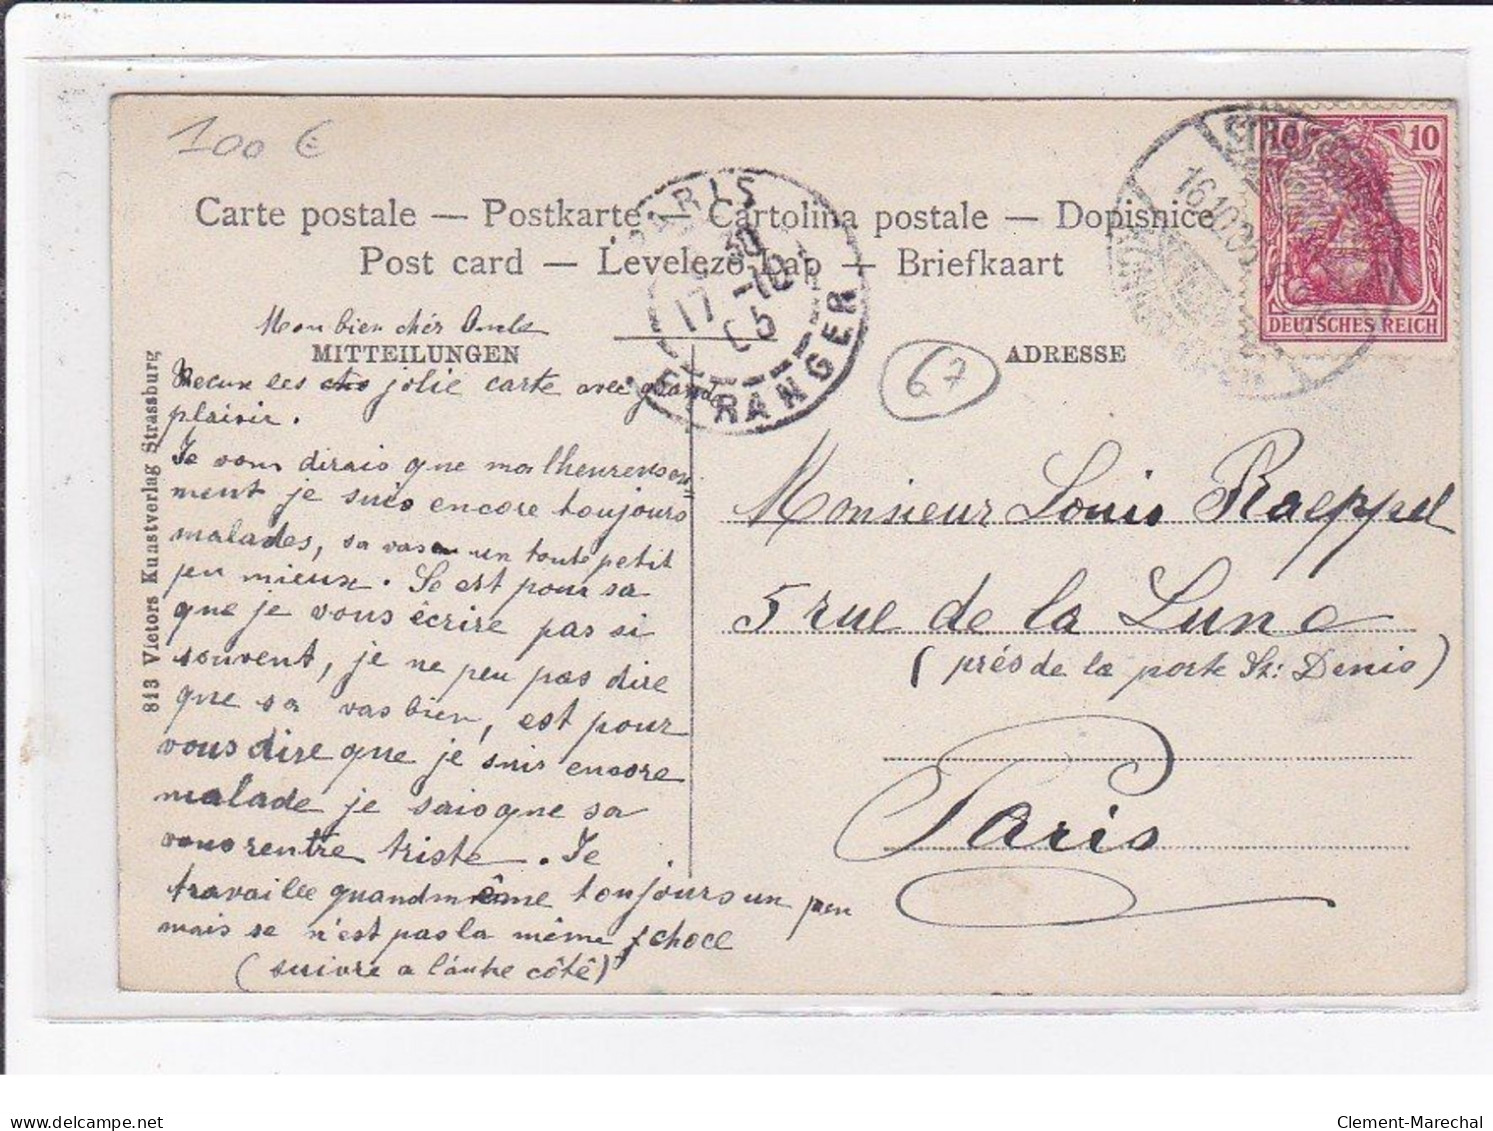 100 €
Carte postale — Postkarte — Cartolina postale — Dopisnice
Post card — Levelező-Lap — Briefkaart
PARIS
30
17 -10
05
ETRANGER
STRASSBURG
16.10.05
10
DEUTSCHES REICH
67
MITTEILUNGEN
ADRESSE
813 Victors Kunstverlag Strassburg
Mon bien chér Oncle
Recux les jolie carte avec grande
plaisir.
Je vous dirais que malheureuse
ment je suis encore toujours
malades, sa vas un toute petit
peu mieux. Se est pour sa
que je vous écrire pas si
souvent, je ne peu pas dire
que sa vas bien, est pour
vous dire que je suis encore
malade je sais que sa
vous rentre triste. Je
travaille quandmême toujours un peu
mais se n'est pas la même choce
(suivre a l'autre côté)
Monsieur Louis Raeppel
5 rue de la Lune
(prés de la porte St: Denis)
Paris
Clement-Marechal
delcampe.net